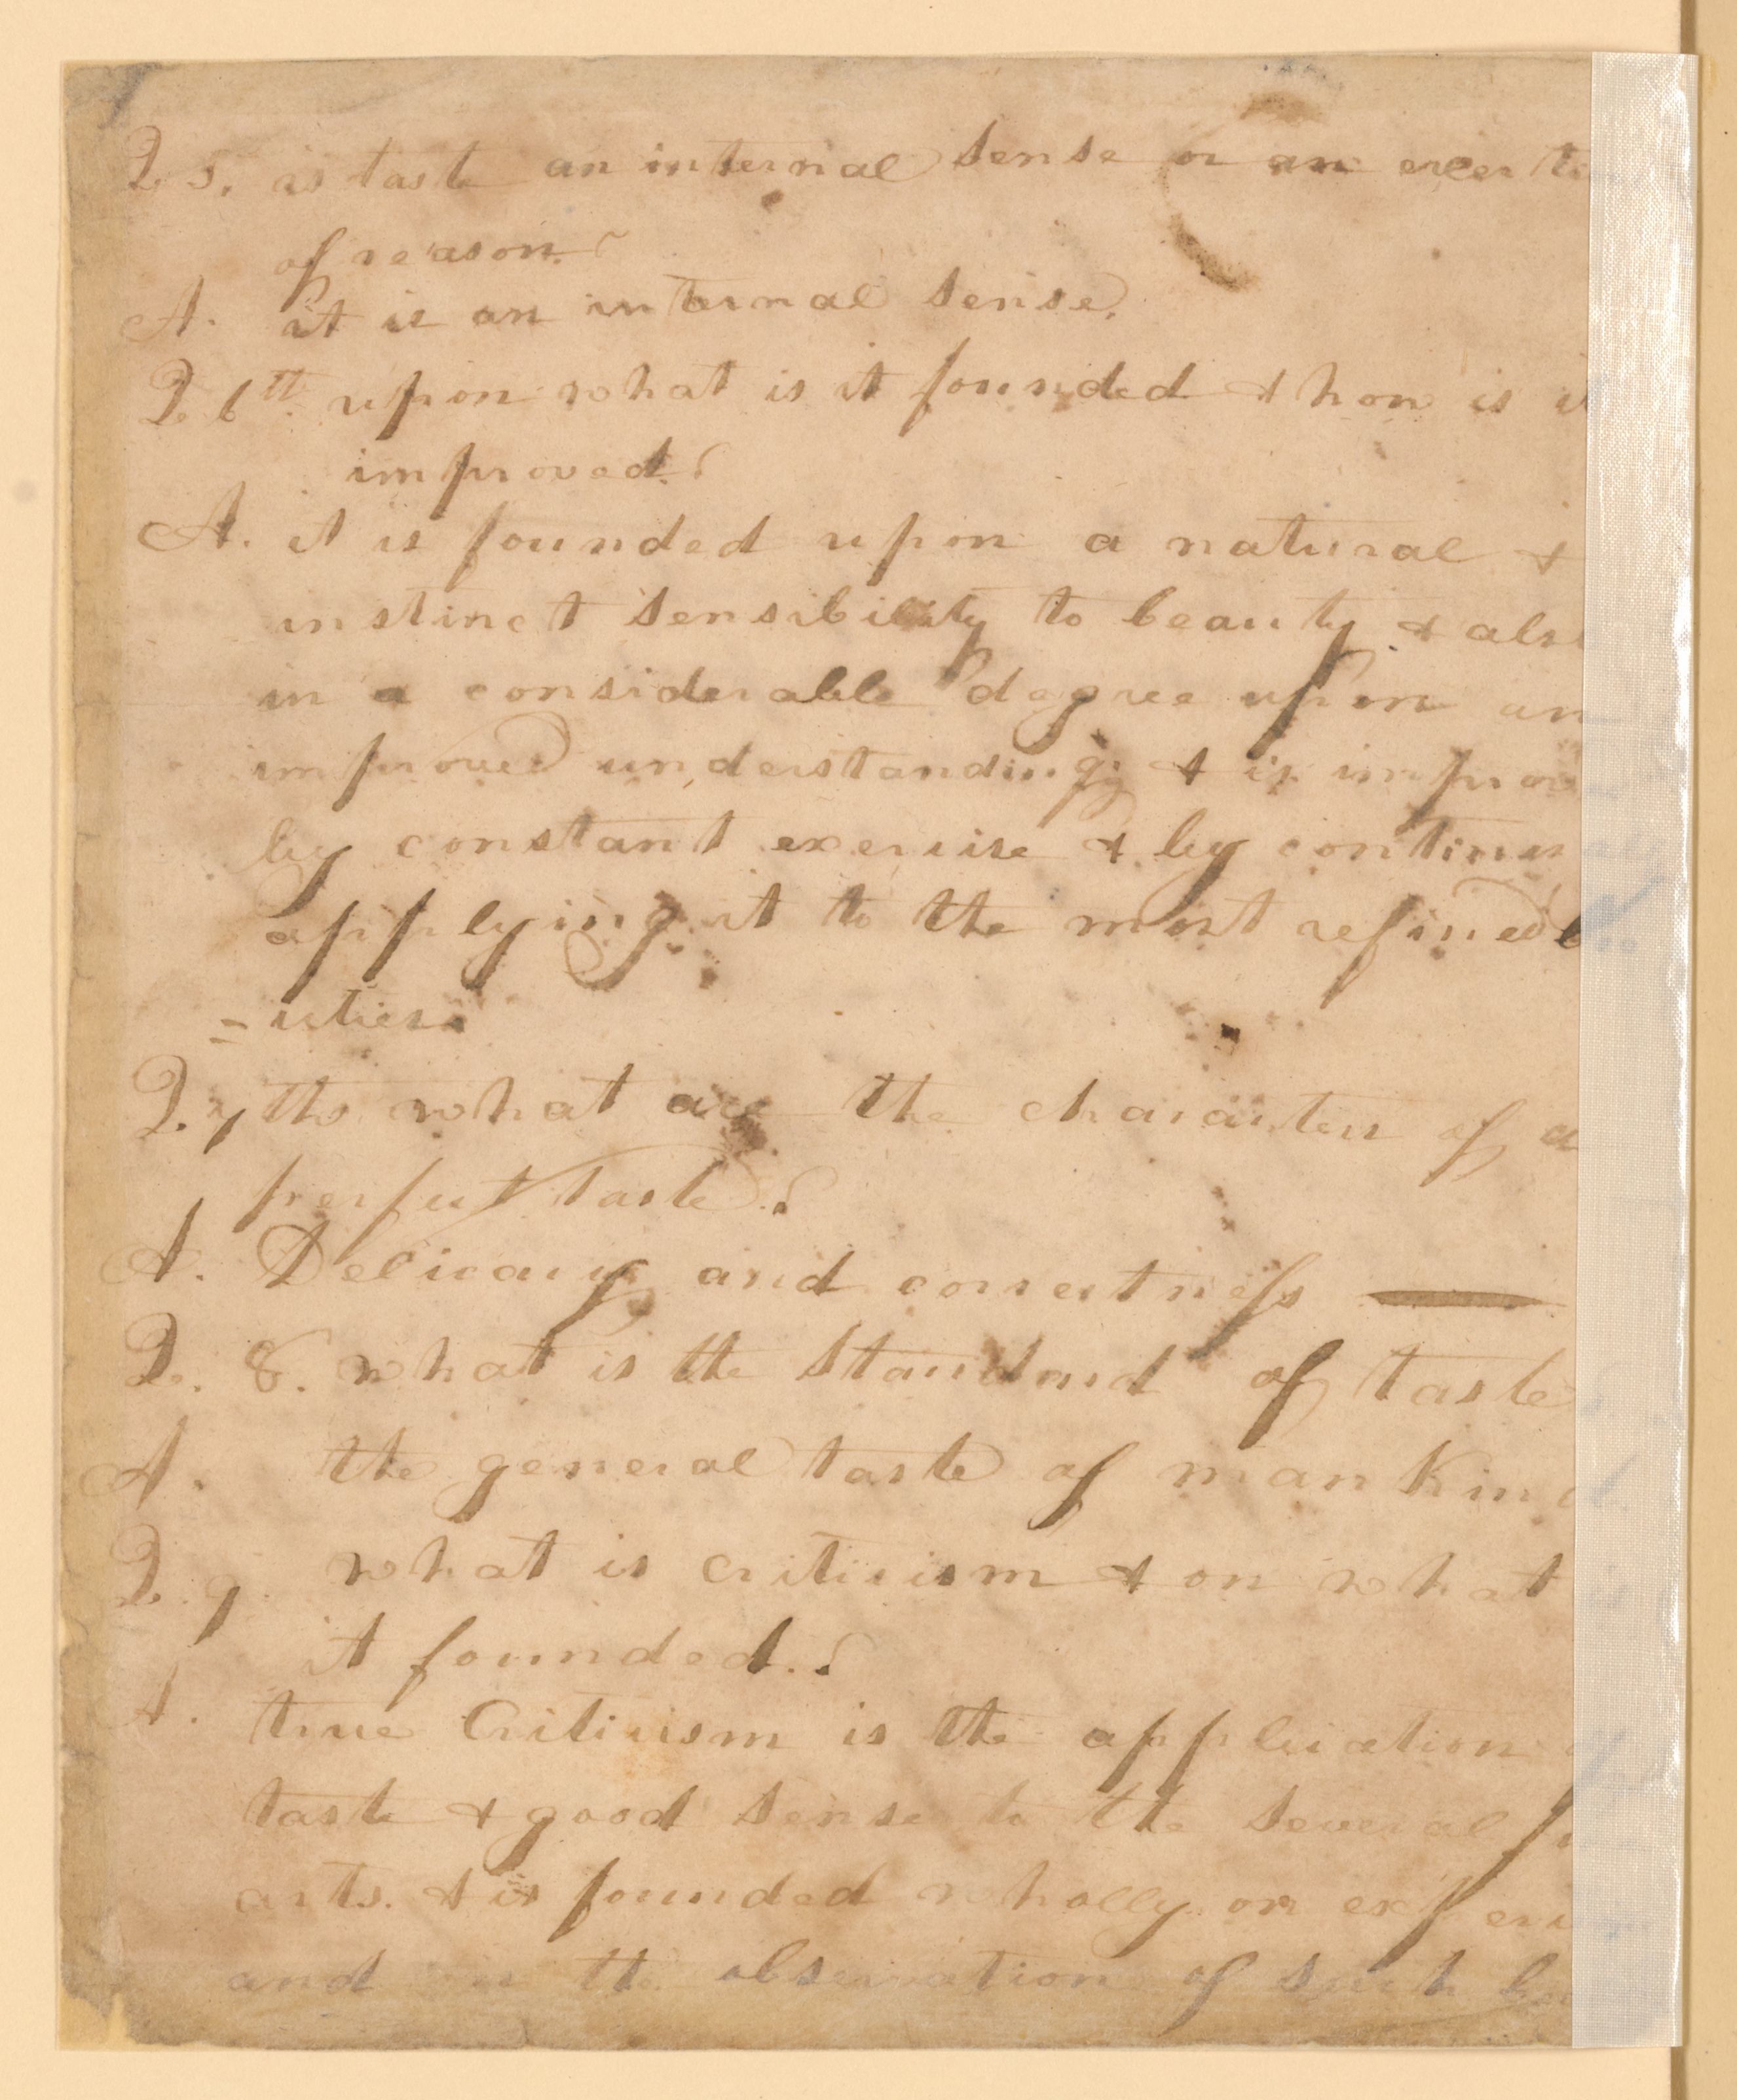 Q 5. is taste an internal sense or an exerti
of reason?
A. it is an internal sense.
Q. 6th upon what is it founded & how is it
improved?
A. it is founded upon a natural &
instinct sensibility to beauty & also
in a considerable degree upon an
improved understanding & is improv
by constant exercise & by continu
applying it to the most refined b
=uties.
Q. 7ths what are the characters of a
perfect taste?
A. Delicacy and correctness
Q. 8. what is the Standard of taste
A. the general taste of man Kind
Q. 9. what is criticism & on what is
it founded?
A. true Criticism is the application
taste & good sense to the several fi
arts. & is founded wholly on experi
and on the observation of such bea